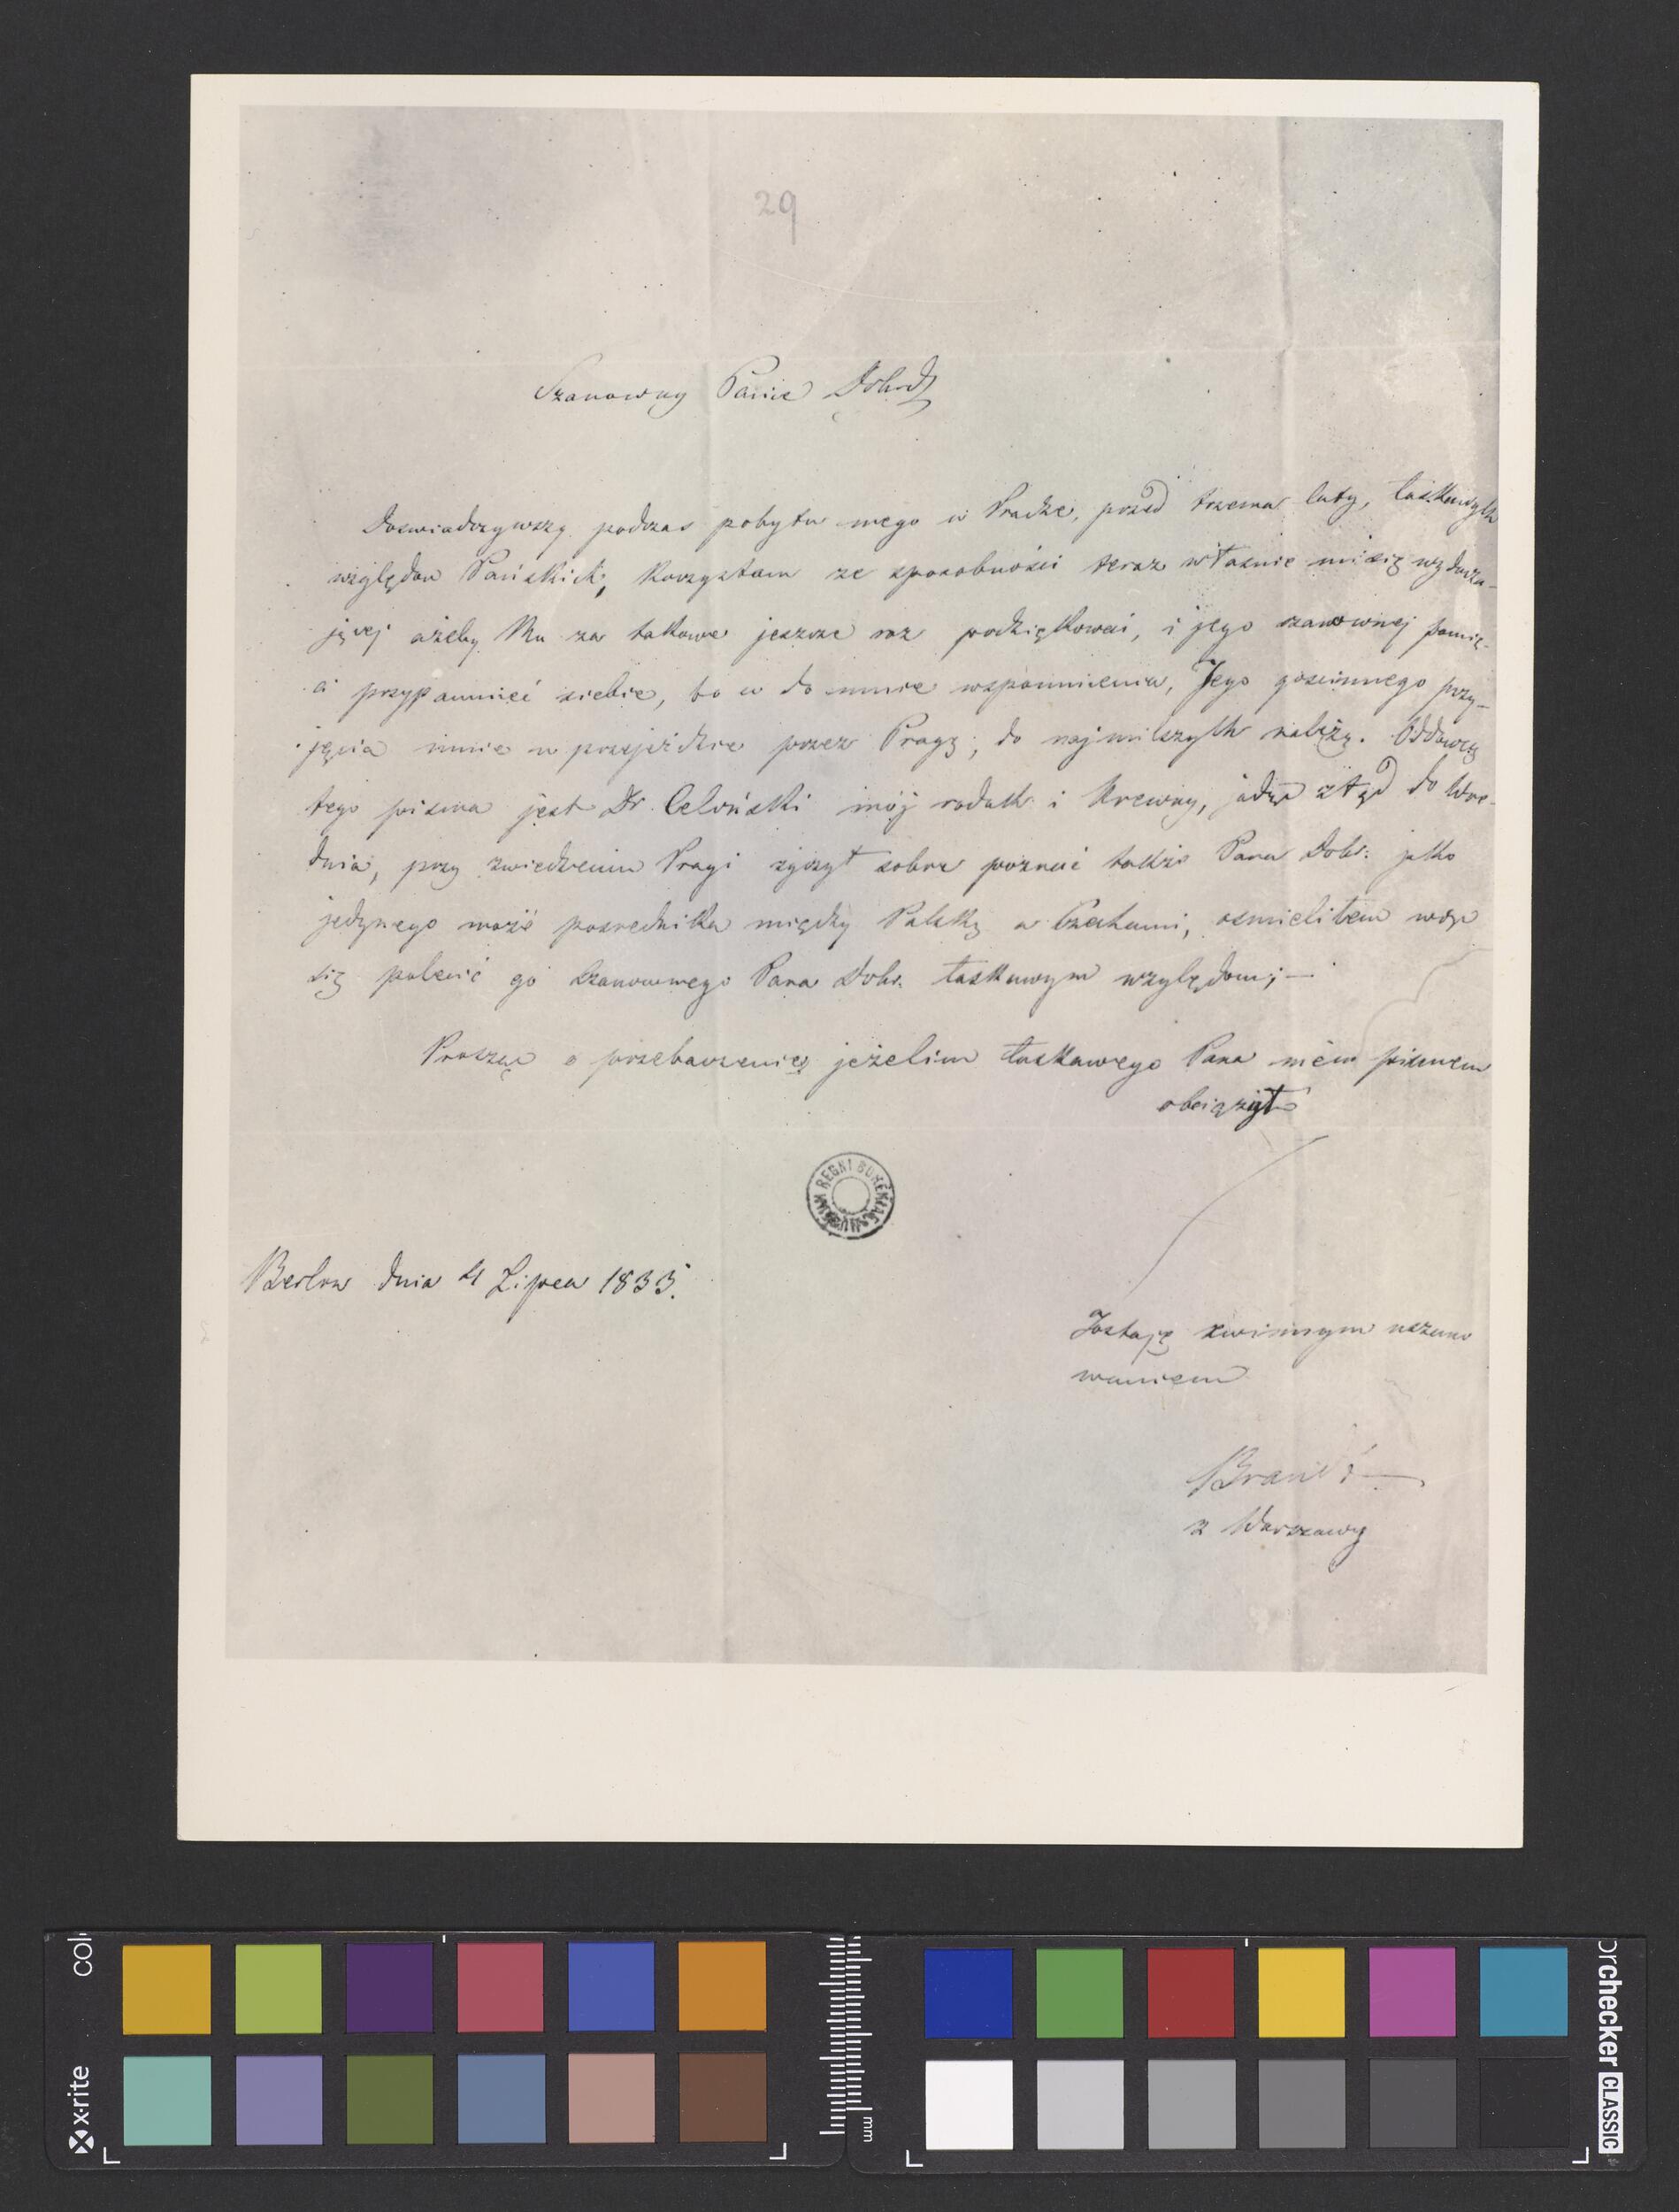 29
Szanowny Panie Dobrodz
Doswiadczywszy podczas pobytu mego w Pradze, przed trzema laty, łaskawych
względów Pańskich, korzystam ze sposobności teraz własnie mi się wydarza-
jącej ażeby Mu za takowe jeszcze raz podziękować, i jego szanownej pamię-
ci przypomnieć siebie, bo w do mnie wspomnienia, Jego goscinnego przy-
jęcia mnie w przejeździe przez Pragę, do najmilszych należy. Oddawcą
tego pisma jest Dr. Celiński mój rodak i Krewny, jadąc ztąd do Wie-
dnia, przy zwiedzeniu Pragi życzył sobie poznać także Pana Dobr: jako
jedynego może posrednika między Polską a Czechami, osmieliłem więc
się polecić go Szanownego Pana Dobr. łaskawym względom; —
Proszę o przebaczenie jeżelim łaskawego Pana mém pismem
obciążył
REGNI BOHEMIAE MUSEUM
Berlin dnia 4 Lipca 1835.
Zostaję z winnym uszano
waniem
z Warszawy
col
x-rite
mm
orchecker CLASSIC